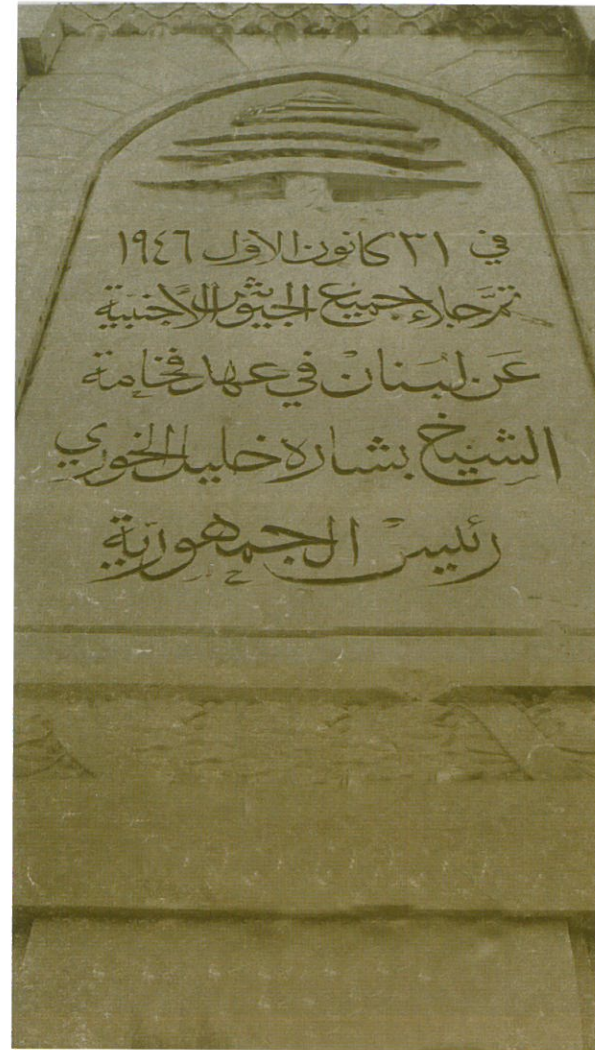 في ٣١ كانون الاول ١٩٤٦
تمَّ جلاء جميع الجيوش الأجنبية
عَن لبُنان في عهد فخامة
الشيخ بشاره خليل الخوري
رئيس الجمهوريّة